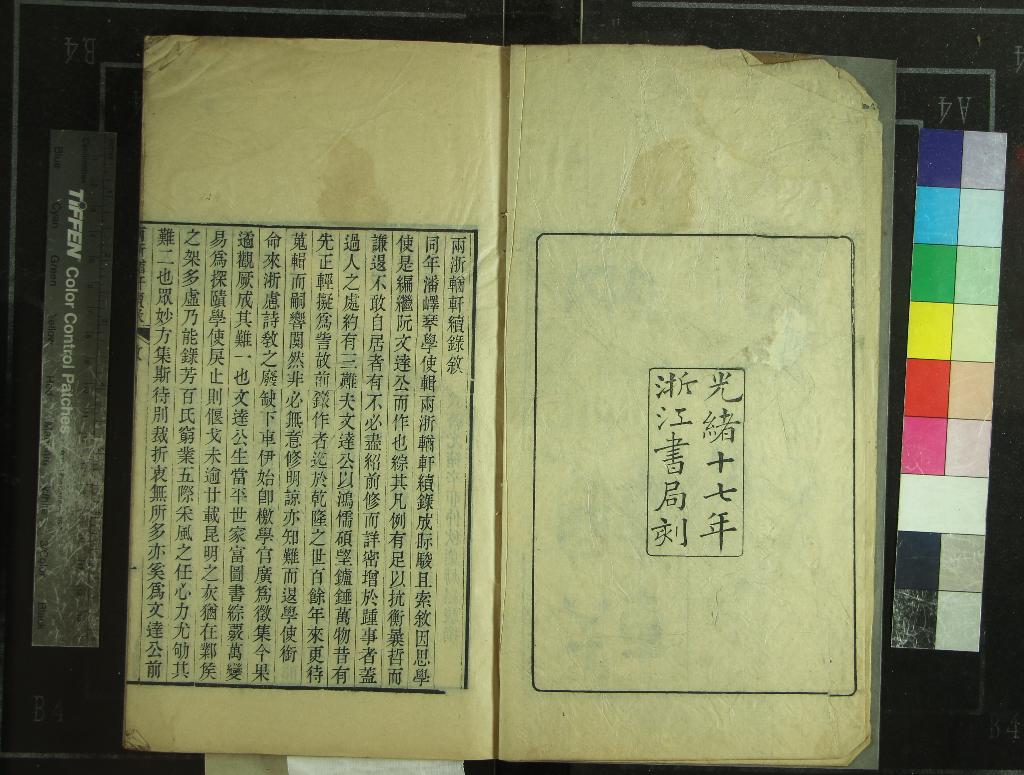 光緒十七年
浙江書局刻
兩浙輶軒續錄敘
同年潘嶧琴學使輯兩浙輶軒續錄成眎駿且索敘因思學
使是編繼阮文達公而作也綜其凡例有足以抗衡曩哲而
謙退不敢自居者有不必盡紹前修而詳密增於踵事者蓋
過人之處約有三難夫文達公以鴻儒碩望鑪錘萬物昔有
先正輕擬爲訾故前錄作者迄於乾隆之世百餘年來更待
蒐輯而嗣響闃然非必無意修明諒亦知難而退學使銜
命來浙慮詩敎之廢缺下車伊始卽檄學官廣爲徵集今果
遹觀厥成其難一也文達公生當平世家富圖書綜覈萬變
易爲探賾學使戾止則偃戈未逾廿載昆明之灰猶在鄴矦
之架多虛乃能錄芳百氏窮業五際采風之任心力尤劬其
難二也眾妙方集斯待別裁折衷無所多亦奚爲文達公前
TIFFEN Color Control Patches
Blue
Cyan
Green
Yellow
Black
B4
A4
B4
B4